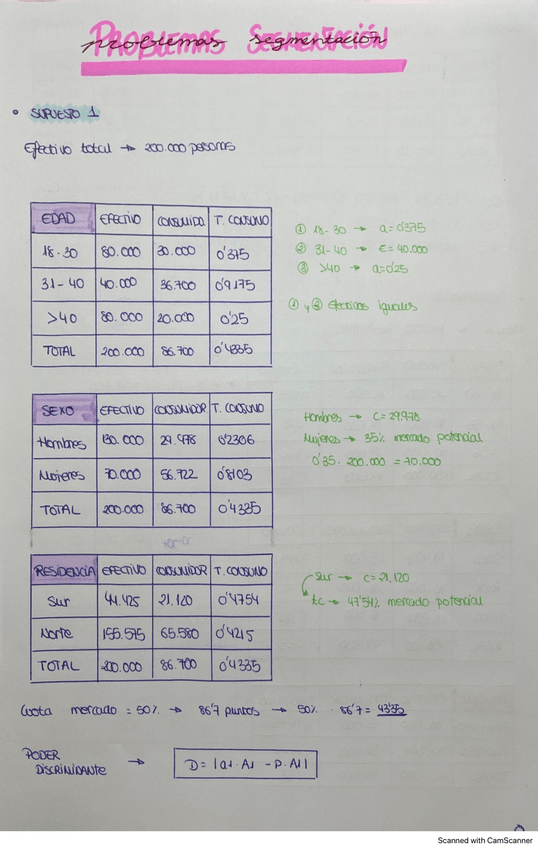 PROBLEMAS SEGMENTACIÓN
problemas segmentación
• SUPUESTO 1
Efectivo total → 200.000 personas
EDAD EFECTIVO CONSUMIDO T. CONSUMO
18-30 80.000 30.000 0'375
31-40 40.000 36.700 0'9175
>40 80.000 20.000 0'25
TOTAL 200.000 86.700 0'4335
① 18-30 → a=0'375
② 31-40 → E=40.000
③ >40 → a=0'25
① y ③ efectivos iguales
SEXO EFECTIVO CONSUMIDOR T. CONSUMO
Hombres 130.000 29.978 0'2306
Mujeres 70.000 56.722 0'8103
TOTAL 200.000 86.700 0'4335
Hombres → C=29.978
Mujeres → 35% mercado potencial
0'35 · 200.000 = 70.000
RESIDENCIA EFECTIVO CONSUMIDOR T. CONSUMO
Sur 44.425 21.120 0'4754
Norte 155.575 65.580 0'4215
TOTAL 200.000 86.700 0'4335
Sur → C=21.120
tc → 47'54% mercado potencial
Cuota mercado = 50% → 86'7 puntos → 50% · 86'7 = 43'35
PODER
DISCRIMINANTE → D= |a1·A1 - P·A1|
Scanned with CamScanner